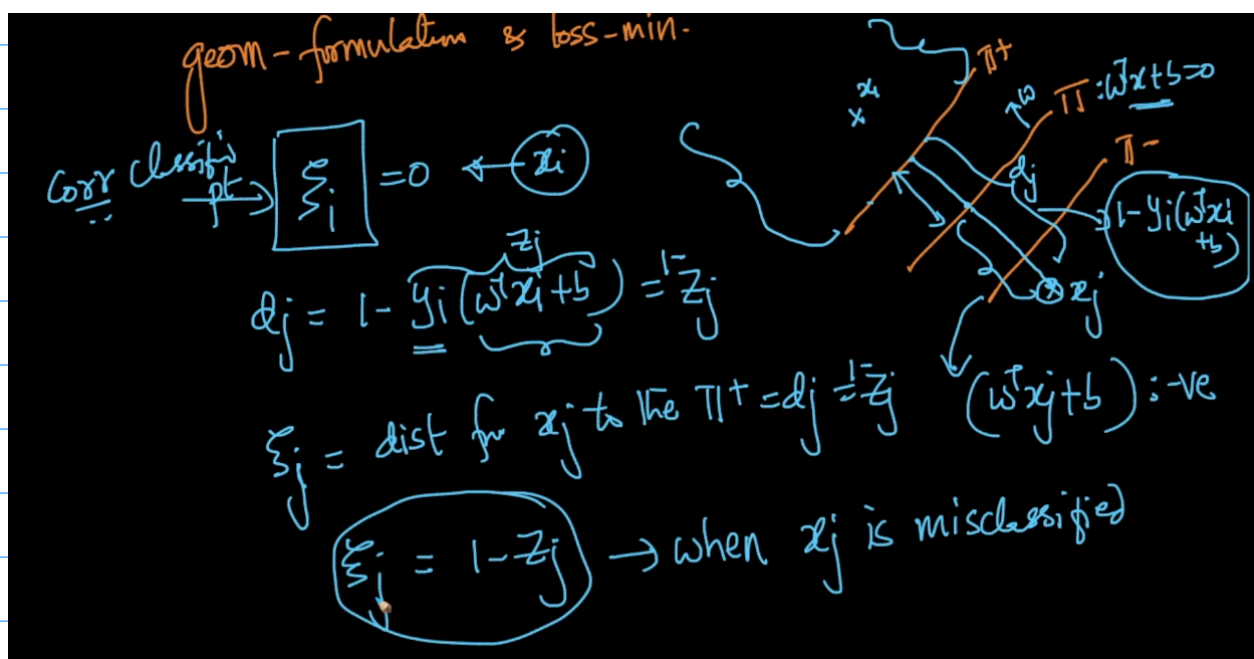 geom-formulation & loss-min.
corr classifi pt → ξi = 0 ← xi
dj = 1 - yi(wᵀxi+b) = 1- zj
zj
ξj = dist for xj to the π+ = dj = 1- zj
ξj = 1 - zj → when xj is misclassified
π+
xi
w
π : wᵀx+b=0
π-
dj
1 - yi(wᵀxi
+b)
xj
(wᵀxj+b) : -ve